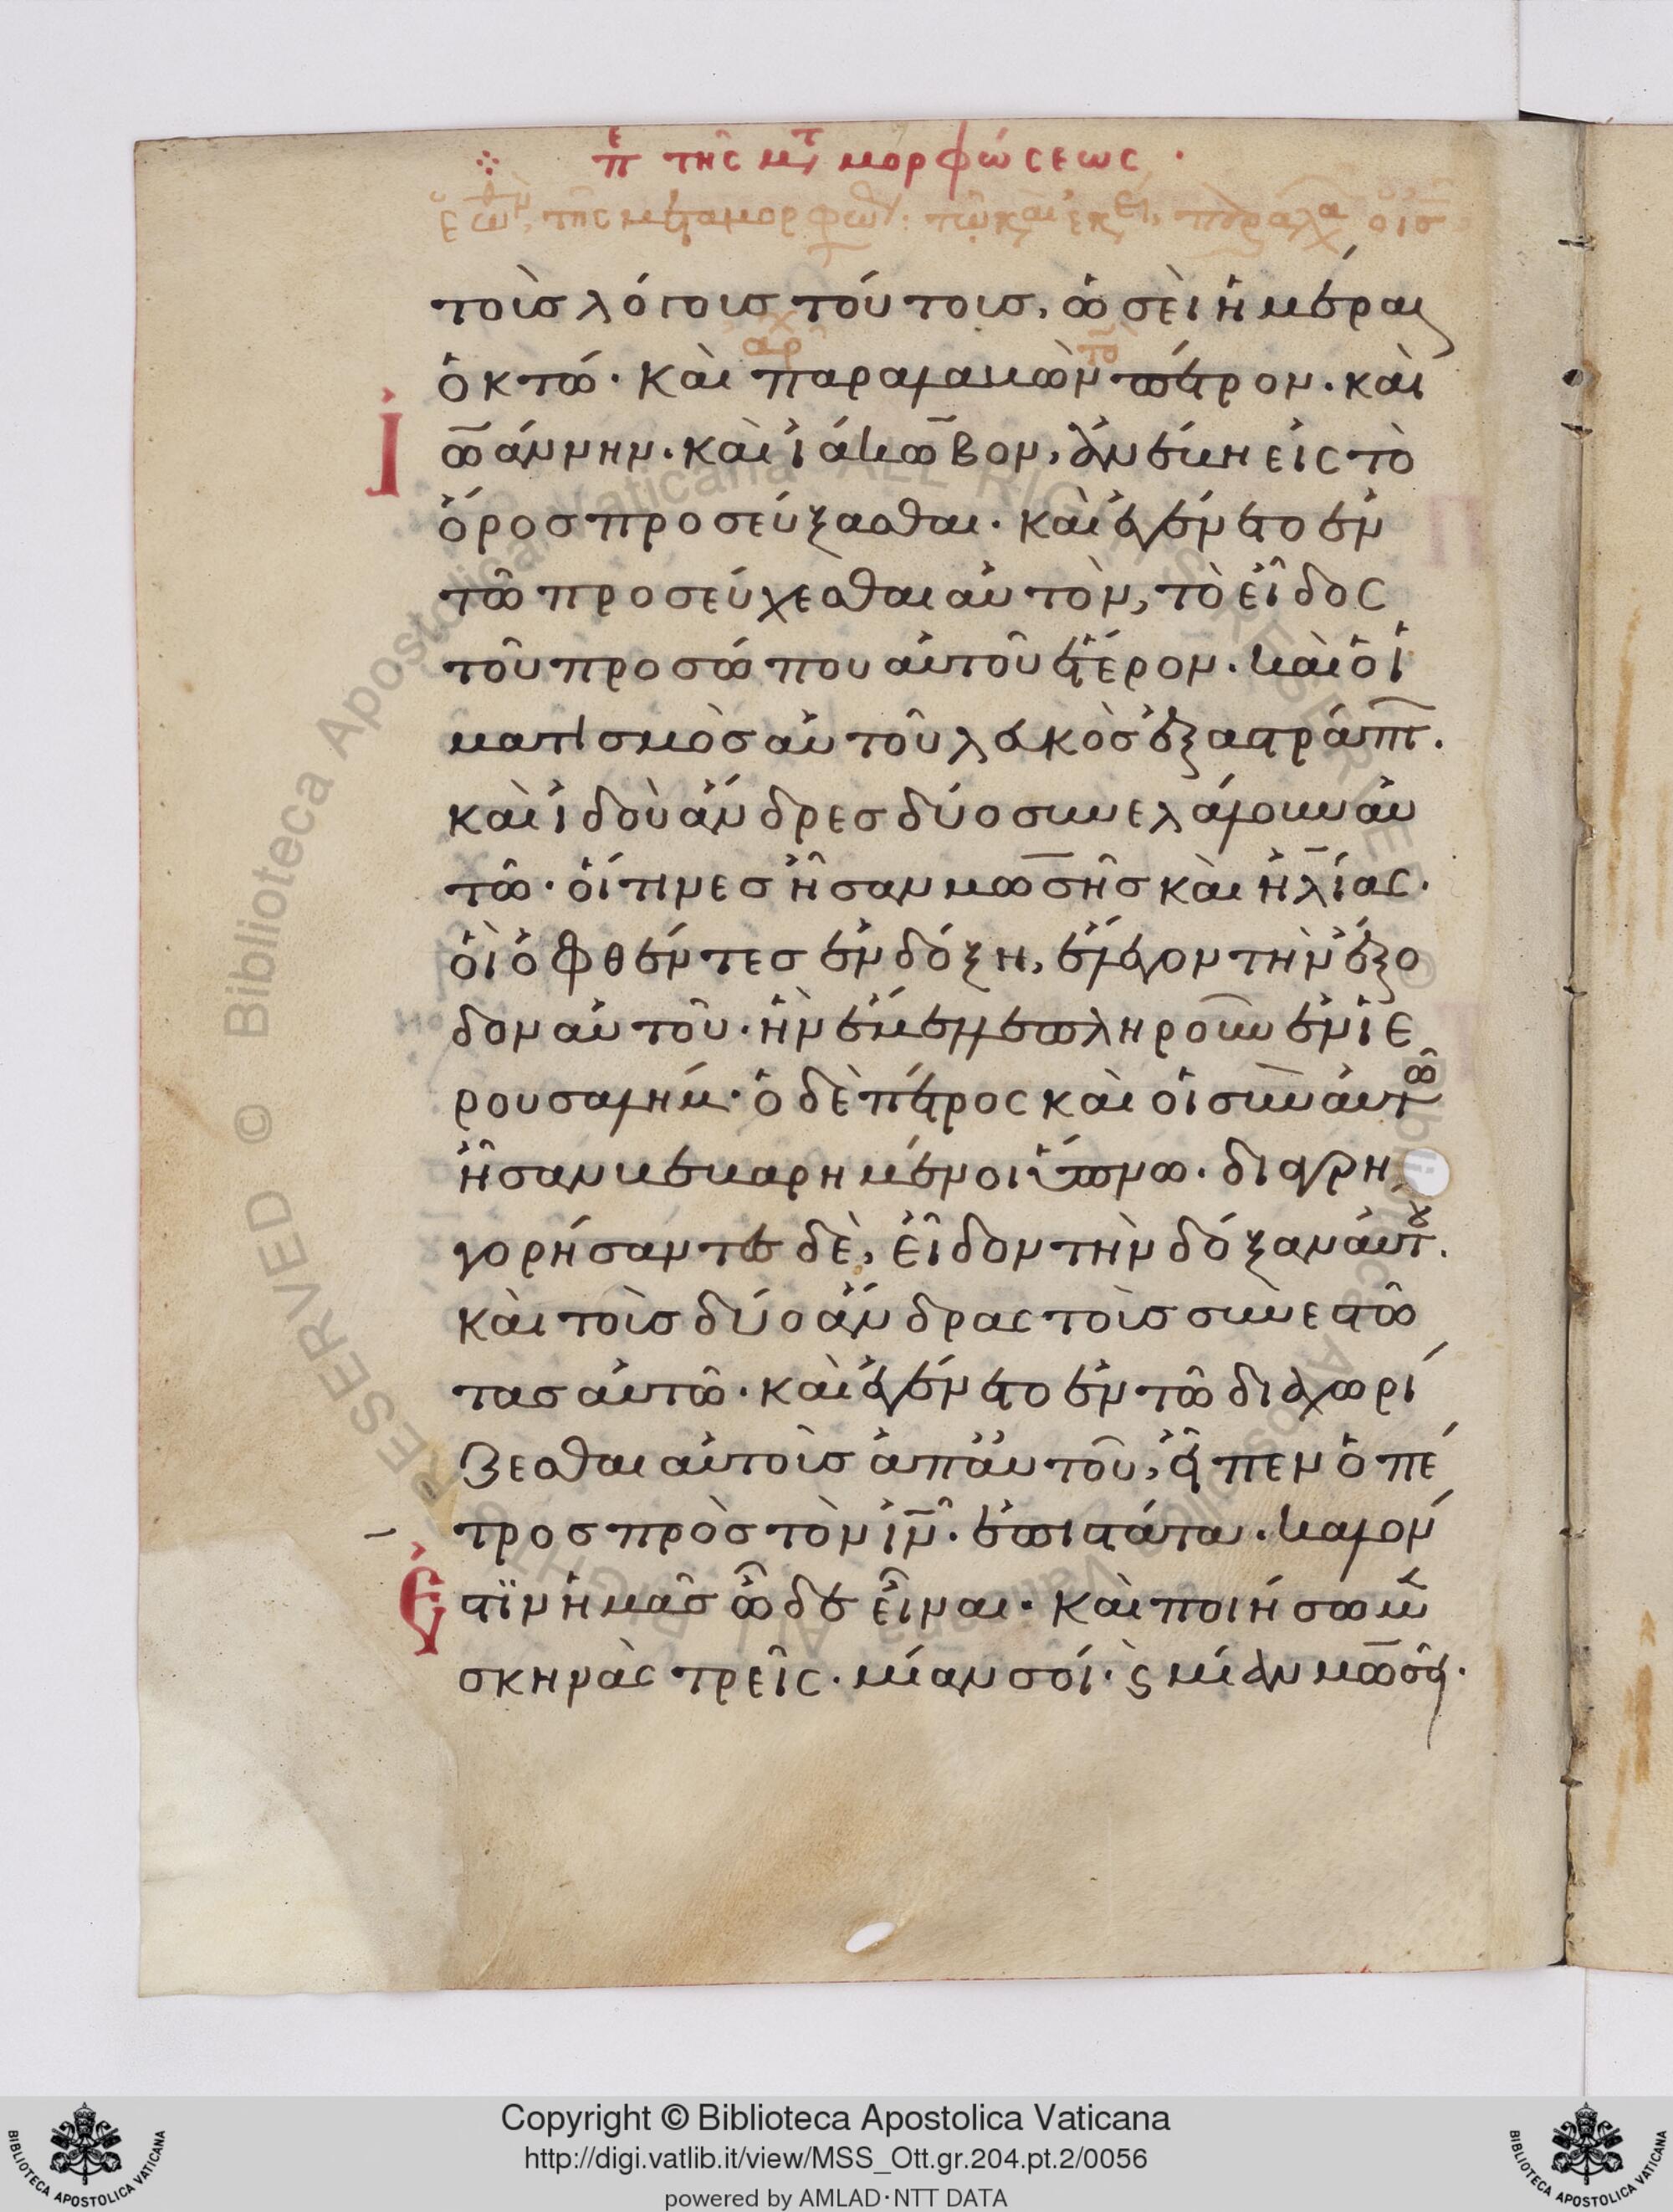 πε της μετ μορφώσεως ·
τοῖς λόγοις τούτοις, ὡσεὶ ἡμέραι
ὀκτώ · καὶ παραλαβὼν πέτρον · καὶ
ἰωάννην · καὶ ἰάκωβον, ἀνέβη εἰς τὸ
ὄρος προσεύξασθαι · καὶ ἐγένετο ἐν
τῶ προσεύχεσθαι αὐτὸν, τὸ εἶδος
τοῦ προσώπου αὐτοῦ ἕτερον · καὶ ὁ ἱ
ματισμὸς αὐτοῦ λευκὸς ἐξαστράπτ .
καὶ ἰδοὺ ἄνδρες δύο συνελάλουν αὐ
τῶ · οἵτινες ἦσαν μωσῆς καὶ ἠλίας ·
οἱ ὀφθέντες ἐν δόξη, ἔλεγον τὴν ἔξο
δον αὐτοῦ · ἣν ἔμελλε πληροῦν ἐν ἱε
ρουσαλήμ · ὁ δὲ πέτρος καὶ οἱ σὺν αὐτῶ
ἦσαν βεβαρημένοι ὕπνω · διαγρη
γορήσαντες δὲ, εἶδον τὴν δόξαν αὐτοῦ .
καὶ τοὺς δύο ἄνδρας τοὺς συνεστῶ
τας αὐτῶ · καὶ ἐγένετο ἐν τῶ διαχωρί
ζεσθαι αὐτοὺς ἀπ' αὐτοῦ, εἶπεν ὁ πέ
τρος πρὸς τὸν ἰν · ἐπιστάτα · καλόν
ἐστϊν ἡμᾶς ὧδε εἶναι · καὶ ποιήσωμεν
σκηνὰς τρεῖς · μίαν σοί · ϛ μίαν μωσεῖ ·
Copyright © Biblioteca Apostolica Vaticana
http://digi.vatlib.it/view/MSS_Ott.gr.204.pt.2/0056
powered by AMLAD·NTT DATA
BIBLIOTECA APOSTOLICA VATICANA
BIBLIOTECA APOSTOLICA VATICANA